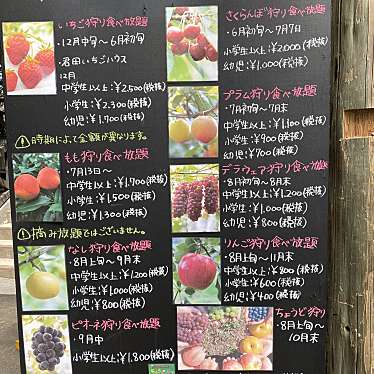 いちご狩り食べ放題
・12月中旬〜6月初旬
・君田いちごハウス
12月
中学生以上:¥2,500(税抜)
小学生:¥2,300(税抜)
幼児:¥1,700(税抜)
⚠時期によって金額が異なります。
もも狩り食べ放題
・7月13日〜
中学生以上:¥1,700(税抜)
小学生:¥1,500(税抜)
幼児:¥1,300(税抜)
⚠摘み放題ではございません。
なし狩り食べ放題
・8月上旬〜9月末
中学生以上:¥1,200(税抜)
小学生:¥1,000(税抜)
幼児:¥800(税抜)
ピオーネ狩り食べ放題
・9月中
小学生以上:¥1,800(税抜)
さくらんぼ狩り食べ放題
・6月初旬〜7月7日
小学生以上:¥2,000(税抜)
幼児:¥1,000(税抜)
プラム狩り食べ放題
・7月初旬〜7月末
中学生以上:¥1,100(税抜)
小学生:¥900(税抜)
幼児:¥700(税抜)
デラウェア狩り食べ放題
・8月初旬〜8月末
中学生以上:¥1,200(税抜)
小学生:¥1,000(税抜)
幼児:¥800(税抜)
りんご狩り食べ放題
・8月上旬〜11月末
中学生以上:¥800(税抜)
小学生:¥600(税抜)
幼児:¥400(税抜)
ちょうど狩り
・8月上旬〜
10月末